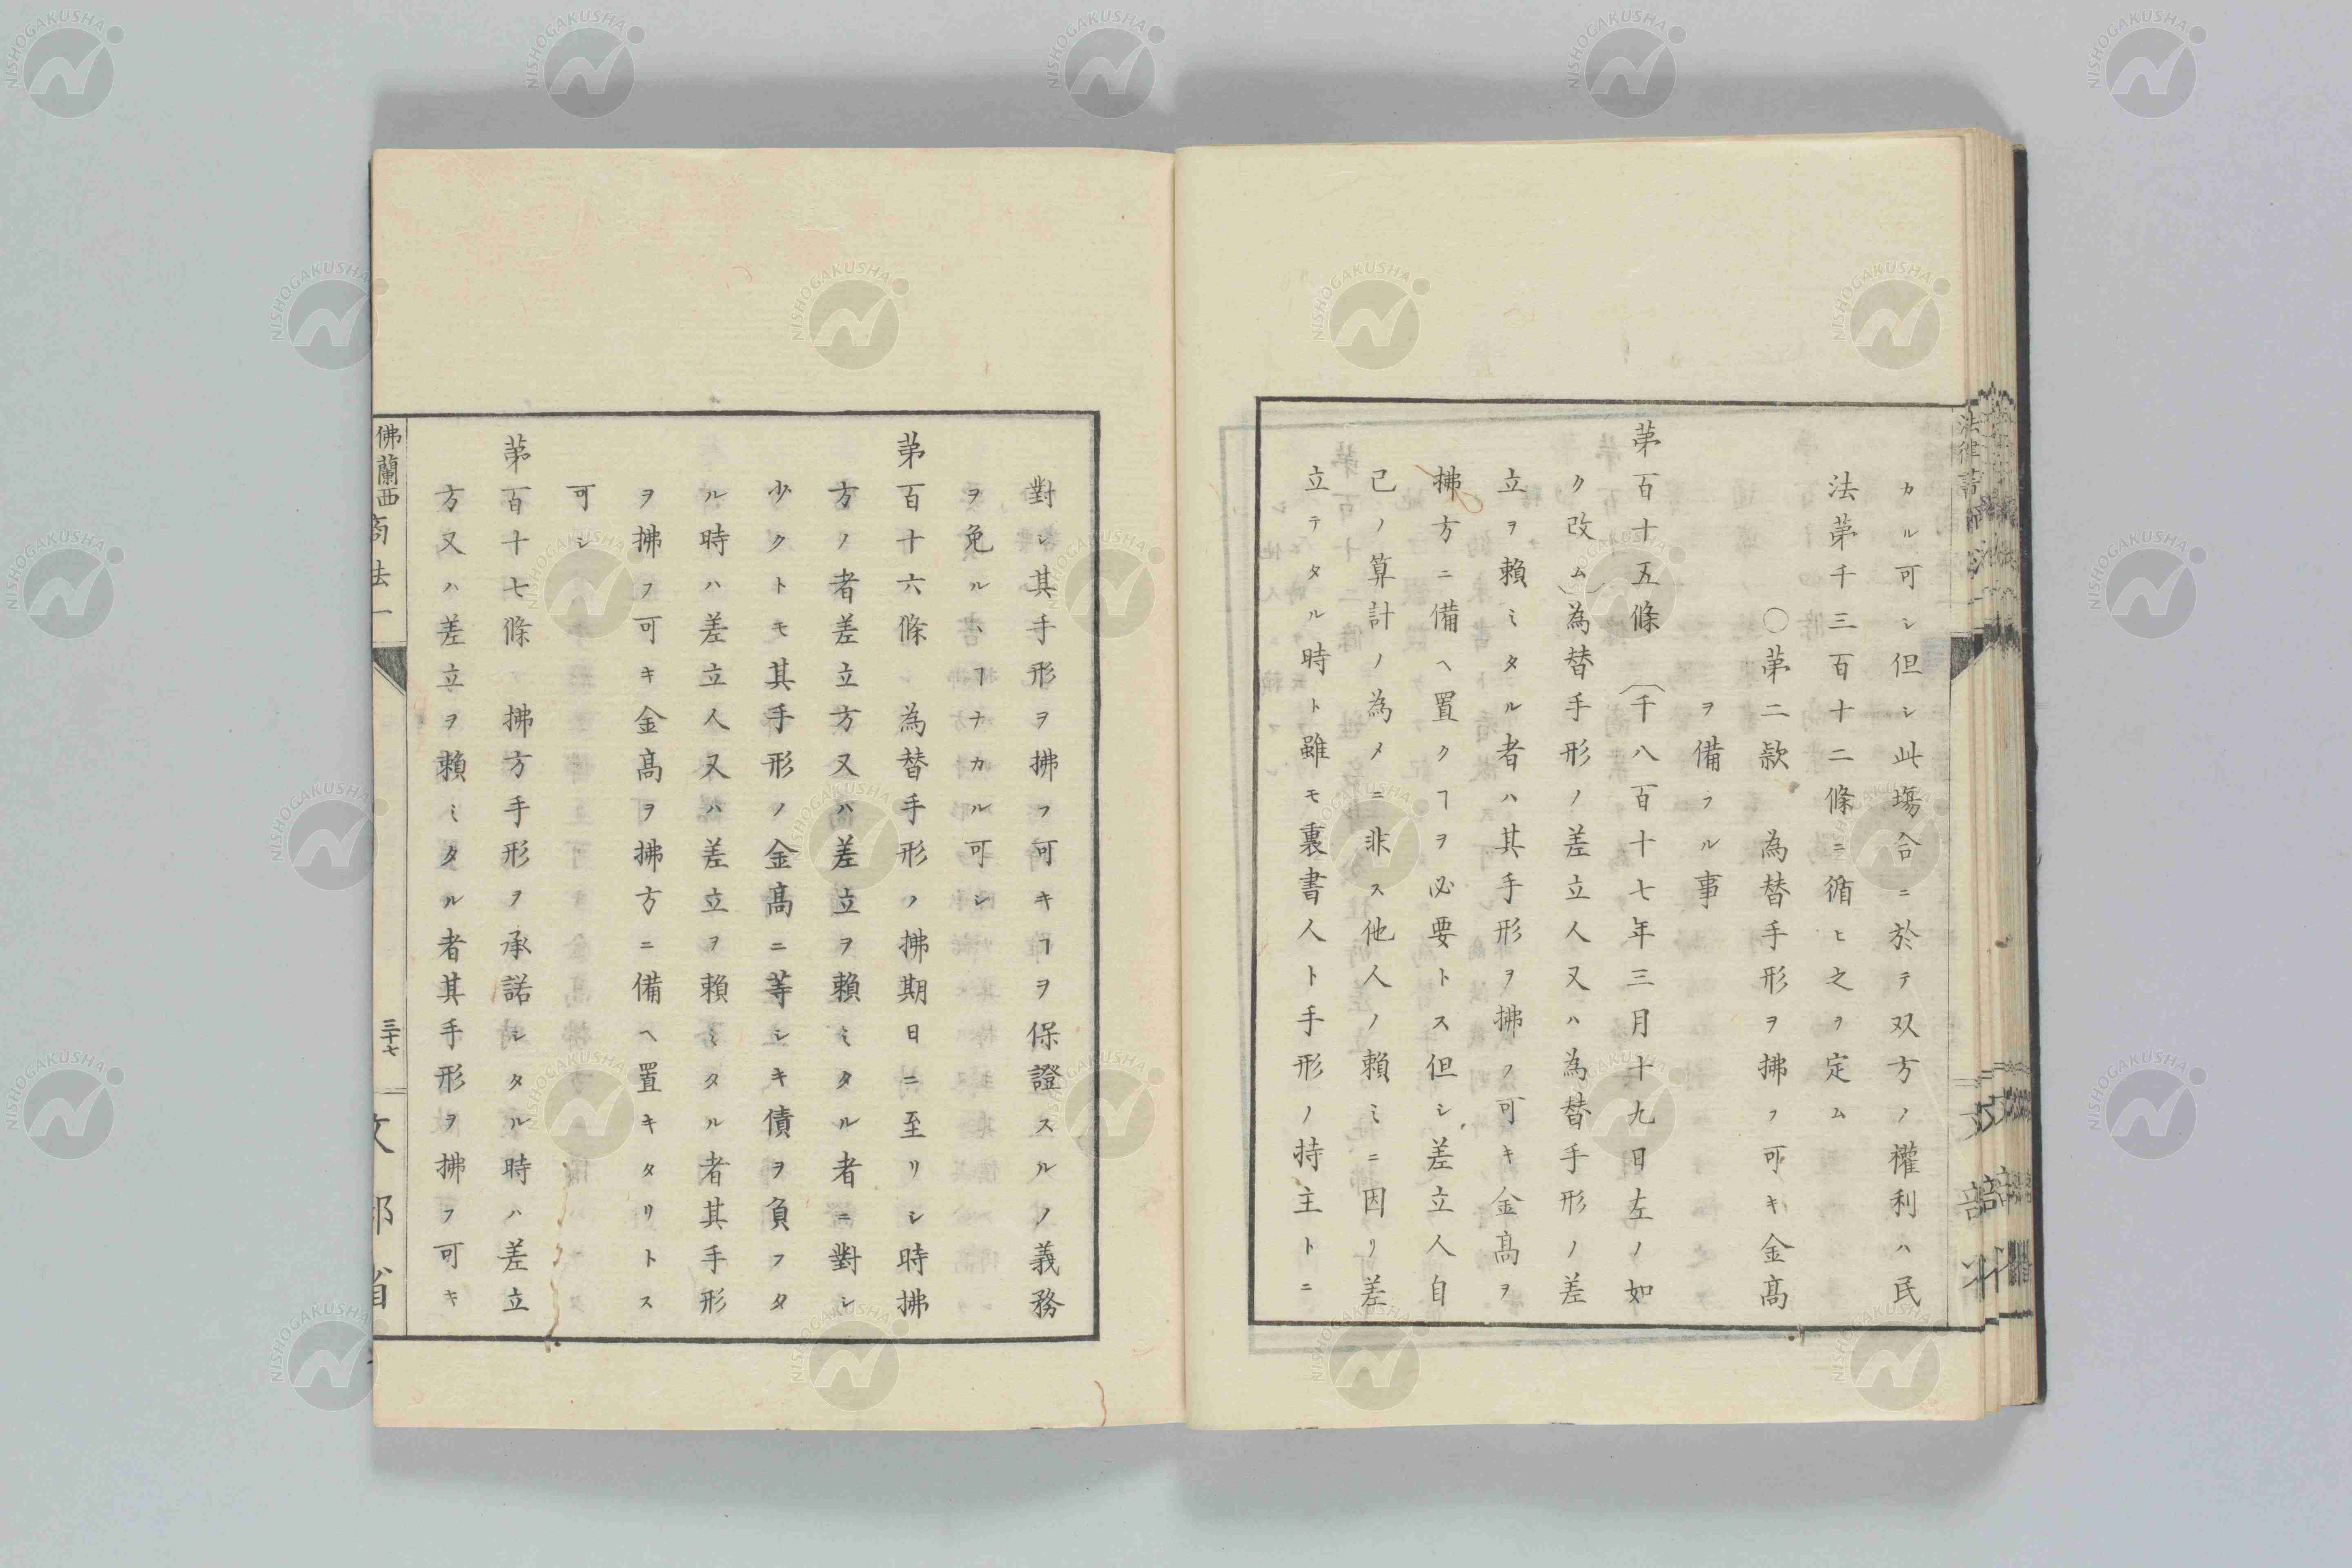 カル可シ但シ此塲合ニ於テ双方ノ權利ハ民
法苐千三百十二條ニ循ヒ之ヲ定ム
〇苐二款　為替手形ヲ拂フ可キ金髙
ヲ備フル事
苐百十五條　（千八百十七年三月十九日左ノ如
ク改ム）為替手形ノ差立人又ハ為替手形ノ差
立ヲ賴ミタル者ハ其手形ヲ拂フ可キ金髙ヲ
拂方ニ備ヘ置クヿヲ必要トス但シ差立人自
己ノ算計ノ為メニ非ス他人ノ賴ミニ因リ差
立テタル時ト雖モ裏書人ト手形ノ持主トニ
對シ其手形ヲ拂フ可キヿヲ保證スルノ義務
ヲ免ルヽヿナカル可シ
苐百十六條　為替手形ノ拂期日ニ至リシ時拂
方ノ者差立方又ハ差立ヲ賴ミタル者ニ對シ
少クトモ其手形ノ金髙ニ等シキ債ヲ負フタ
ル時ハ差立人又ハ差立ヲ賴ミタル者其手形
ヲ拂フ可キ金髙ヲ拂方ニ備ヘ置キタリトス
可シ
苐百十七條　拂方手形ヲ承諾シタル時ハ差立
方又ハ差立ヲ賴ミタル者其手形ヲ拂フ可キ
佛蘭西商法一
三十七
文部省
NISHOGAKUSHA